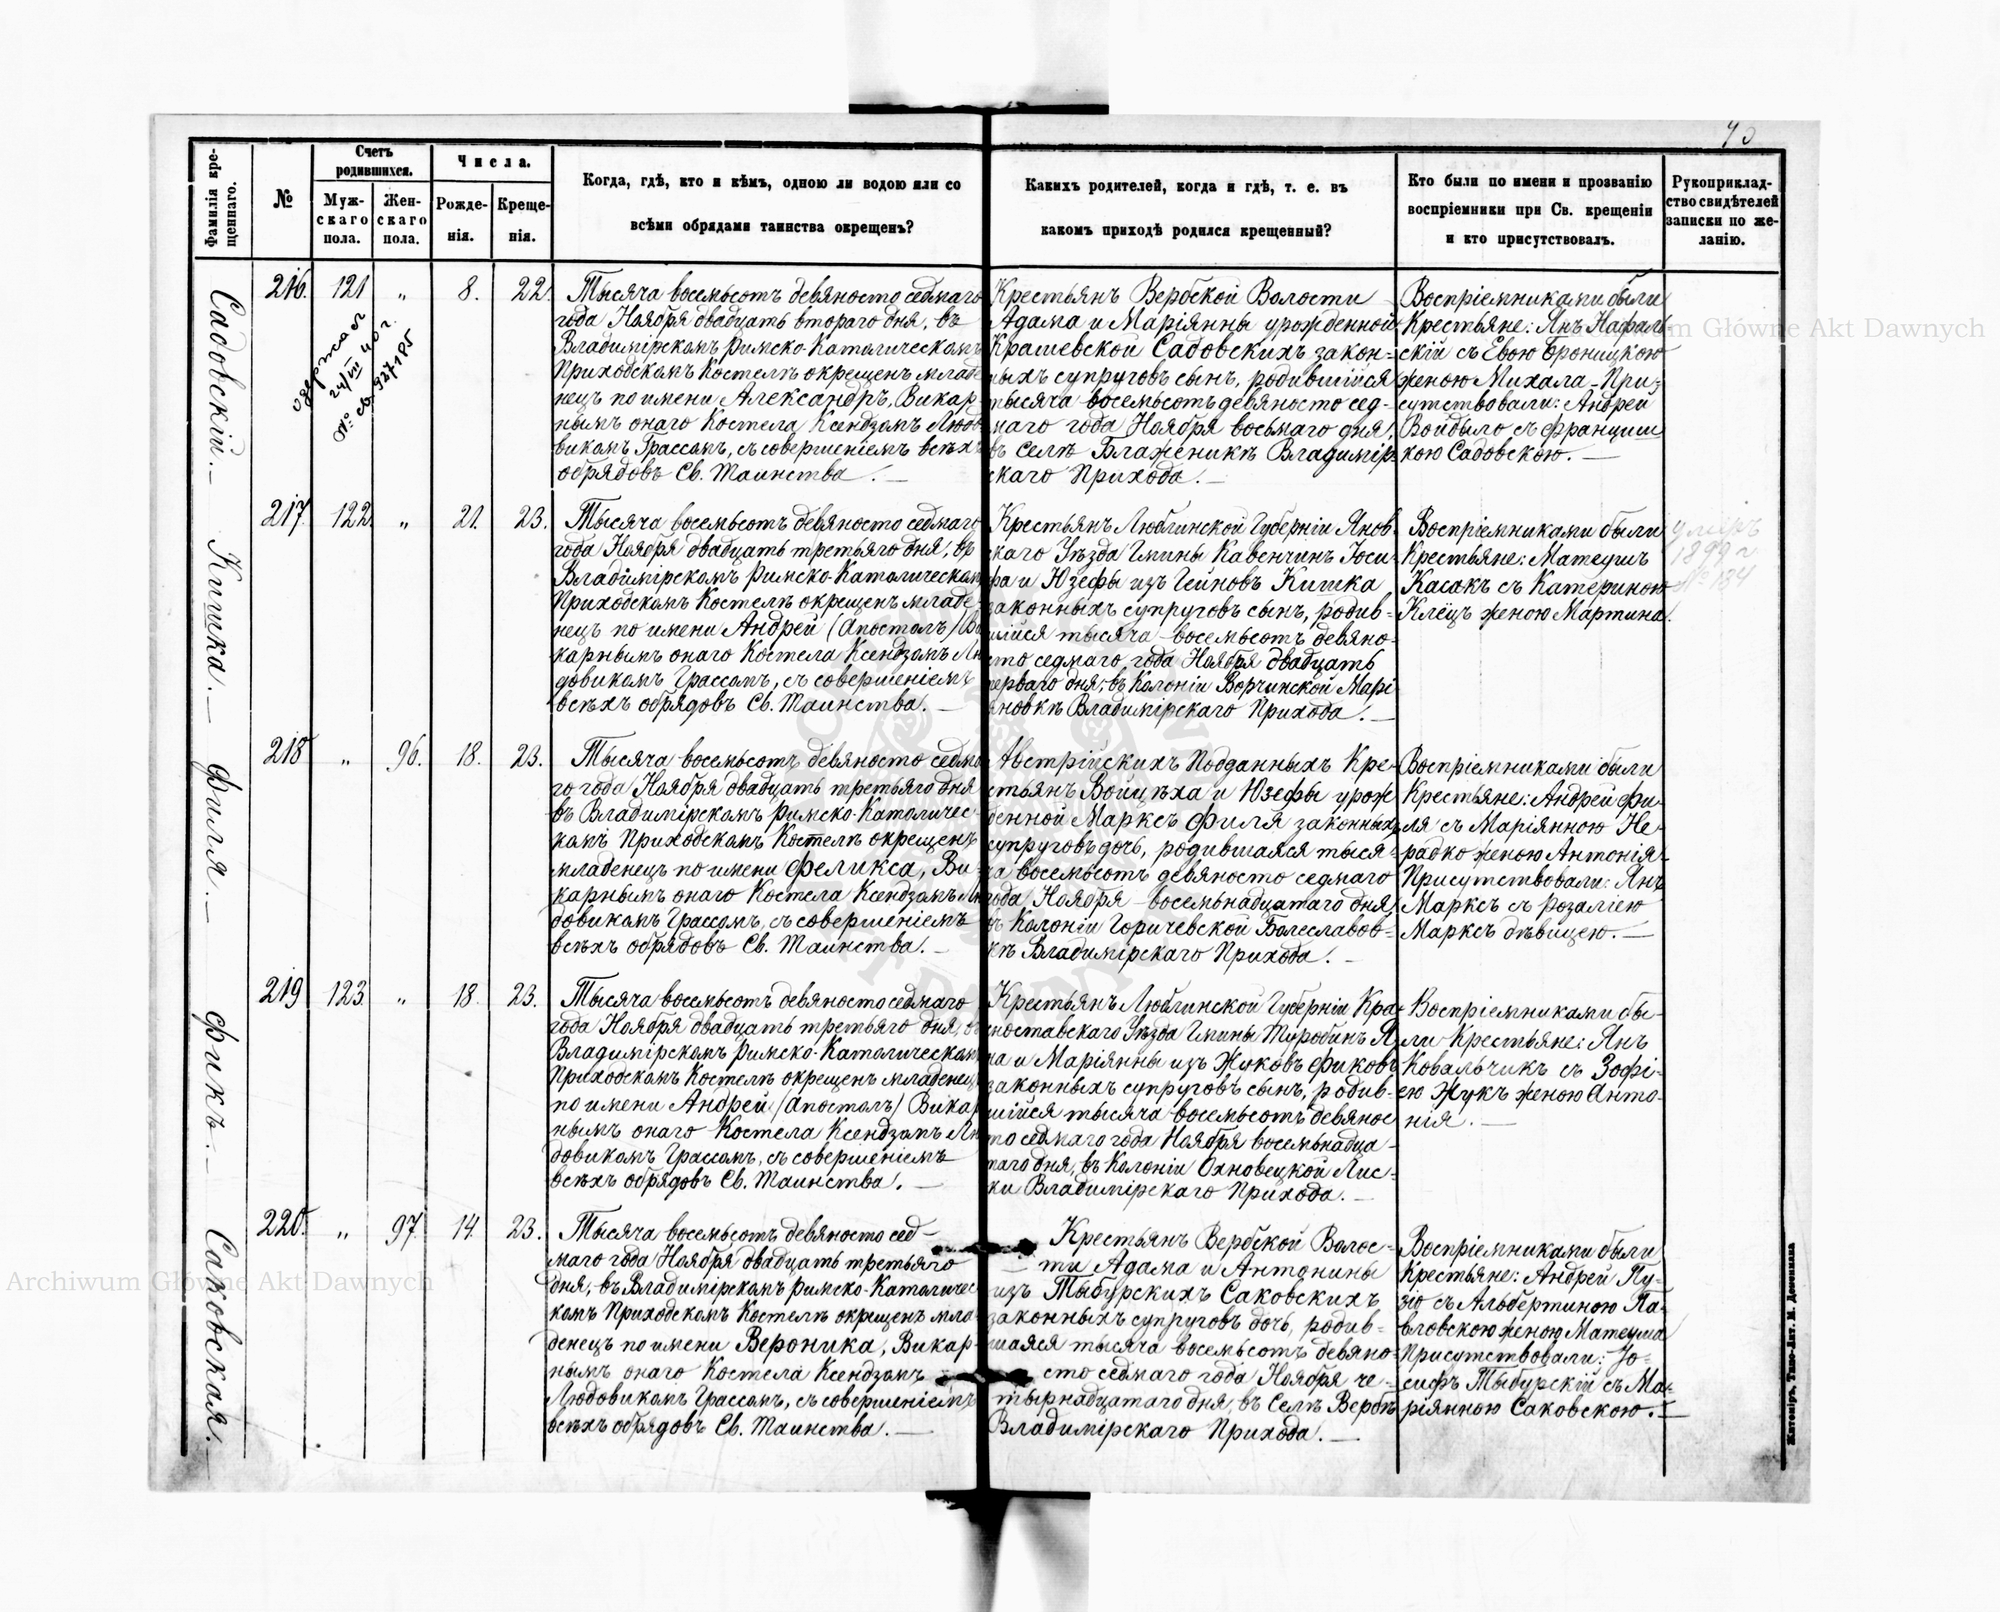 40
Фамилія кре-
щеннаго.
№
Счетъ
родившихся.
Муж-
скаго
пола.
Жен-
скаго
пола.
Числа.
Рожде-
нія.
Креще-
нія.
Когда, гдѣ, кто и кѣмъ, одною ли водою или со
всѣми обрядами таинства окрещенъ?
Какихъ родителей, когда и гдѣ, т. е. въ
какомъ приходѣ родился крещенный?
Кто были по имени и прозванію
воспріемники при Св. крещеніи
и кто присутствовалъ.
Рукоприклад-
ство свидѣтелей
записки по же-
ланію.
Садовскій.—
216. 121 „ 8. 22.
24/VIII 40 г.
№ св. 927185
Тысяча восемьсотъ девяносто седмаго
года Ноября двадцать втораго дня, въ
Владимірскомъ Римско-Католическомъ
Приходскомъ Костелѣ окрещенъ младе-
нецъ по имени Александръ, Викар-
нымъ онаго Костела Ксендзомъ Людо-
викомъ Грассомъ, съ совершеніемъ всѣхъ
обрядовъ Св. Таинства.—
Крестьянъ Вербской Волости
Адама и Маріянны урожденной
Крашевской Садовскихъ закон-
ныхъ супруговъ сынъ, родившійся
тысяча восемьсотъ девяносто сед-
маго года Ноября восьмаго дня,
въ селѣ Блаженикѣ Владимір-
скаго Прихода.—
Воспріемниками были
Крестьяне: Янъ Нафаль-
скій съ Евою Броницкою
женою Михала – При-
сутствовали: Андрей
Войдыло съ Францишк
кою Садовскою.—
Кишка.—
217. 122. „ 21. 23.
Тысяча восемьсотъ девяносто седмаго
года Ноября двадцать третьяго дня, въ
Владимірскомъ Римско-Католическомъ
Приходскомъ Костелѣ окрещенъ младе-
нецъ по имени Андрей (Апостолъ) Ви
карнымъ онаго Костела Ксендзомъ Лю
довикомъ Грассомъ, съ совершеніемъ
всѣхъ обрядовъ Св. Таинства.—
Крестьянъ Люблинской Губерніи Янов-
скаго Уѣзда Гмины Кавенчинъ Іоси-
фа и Юзефы изъ Гейновъ Кишка
законныхъ супруговъ сынъ, родив-
шійся тысяча восемьсотъ девяно-
сто седмаго года Ноября двадцать
перваго дня, въ Колоніи Ворчинской Марі
яновкѣ Владимірскаго Прихода.—
Воспріемниками были
Крестьяне: Матеушъ
Касакъ съ Катериною
Клецъ женою Мартина.
умеръ
1899 г.
№ 184
Филя.—
218 „ 96. 18. 23.
Тысяча восемьсотъ девяносто седма
го года Ноября двадцать третьяго дня
въ Владимірскомъ Римско-Католичес-
комъ Приходскомъ Костелѣ окрещенъ
младенецъ по имени Феликса, Ви-
карнымъ онаго Костела Ксендзомъ Лю
довикомъ Грассомъ, съ совершеніемъ
всѣхъ обрядовъ Св. Таинства.—
Австрійскихъ Подданныхъ Кре-
стьянъ Войцѣха и Юзефы урож
денной Марксъ Филя законныхъ
супруговъ дочь, родившаяся тыся-
ча восемьсотъ девяносто седмаго
года Ноября восемьнадцатаго дня,
въ Колоніи Горичевской Болеславов-
кѣ Владимірскаго Прихода.—
Воспріемниками были
Крестьяне: Андрей Фи-
ля съ Маріянною Не-
радко женою Антонія –
Присутствовали: Янъ
Марксъ съ Розаліею
Марксъ дѣвицею.—
Фикъ.—
219 123. „ 18. 23.
Тысяча восемьсотъ девяносто седмаго
года Ноября двадцать третьяго дня, въ
Владимірскомъ Римско-Католическомъ
Приходскомъ Костелѣ окрещенъ младенецъ
по имени Андрей (Апостолъ) Викар
нымъ онаго Костела Ксендзомъ Лю
довикомъ Грассомъ, съ совершеніемъ
всѣхъ обрядовъ Св. Таинства.—
Крестьянъ Люблинской Губерніи Кра-
сноставскаго Уѣзда Гмины Туробинъ Я-
на и Маріянны изъ Жуковъ Фиковъ
законныхъ супруговъ сынъ, родив-
шійся тысяча восемьсотъ девянос
то седмаго года Ноября восемьнадца-
таго дня, въ Колоніи Охновецкой Лис-
ки Владимірскаго Прихода.—
Воспріемниками бы-
ли Крестьяне: Янъ
Ковальчикъ съ Зофі-
ею Жукъ женою Анто-
нія.—
Саковская.—
220. „ 97. 14. 23.
Тысяча восемьсотъ девяносто сед-
маго года Ноября двадцать третьяго
дня, въ Владимірскомъ Римско-Католичес
комъ Приходскомъ Костелѣ окрещенъ мла-
денецъ по имени Вероника, Викар-
нымъ онаго Костела Ксендзомъ
Людовикомъ Грассомъ, съ совершеніемъ
всѣхъ обрядовъ Св. Таинства.—
Крестьянъ Вербской Волос-
ти Адама и Антонины
изъ Тыбурскихъ Саковскихъ
законныхъ супруговъ дочь, родив-
шаяся тысяча восемьсотъ девяно-
сто седмаго года Ноября че-
тырнадцатаго дня, въ Селѣ Вербѣ
Владимірскаго Прихода.—
Воспріемниками были
Крестьяне: Андрей Пу-
зіо съ Альбертиною Па-
вловскою женою Матеуша
Присутствовали: Іо-
сифъ Тыбурскій съ Ма-
ріянною Саковскою.—
Житоміръ, Типо-Лит. М. Дененмана
Archiwum Główne Akt Dawnych
Archiwum Główne Akt Dawnych